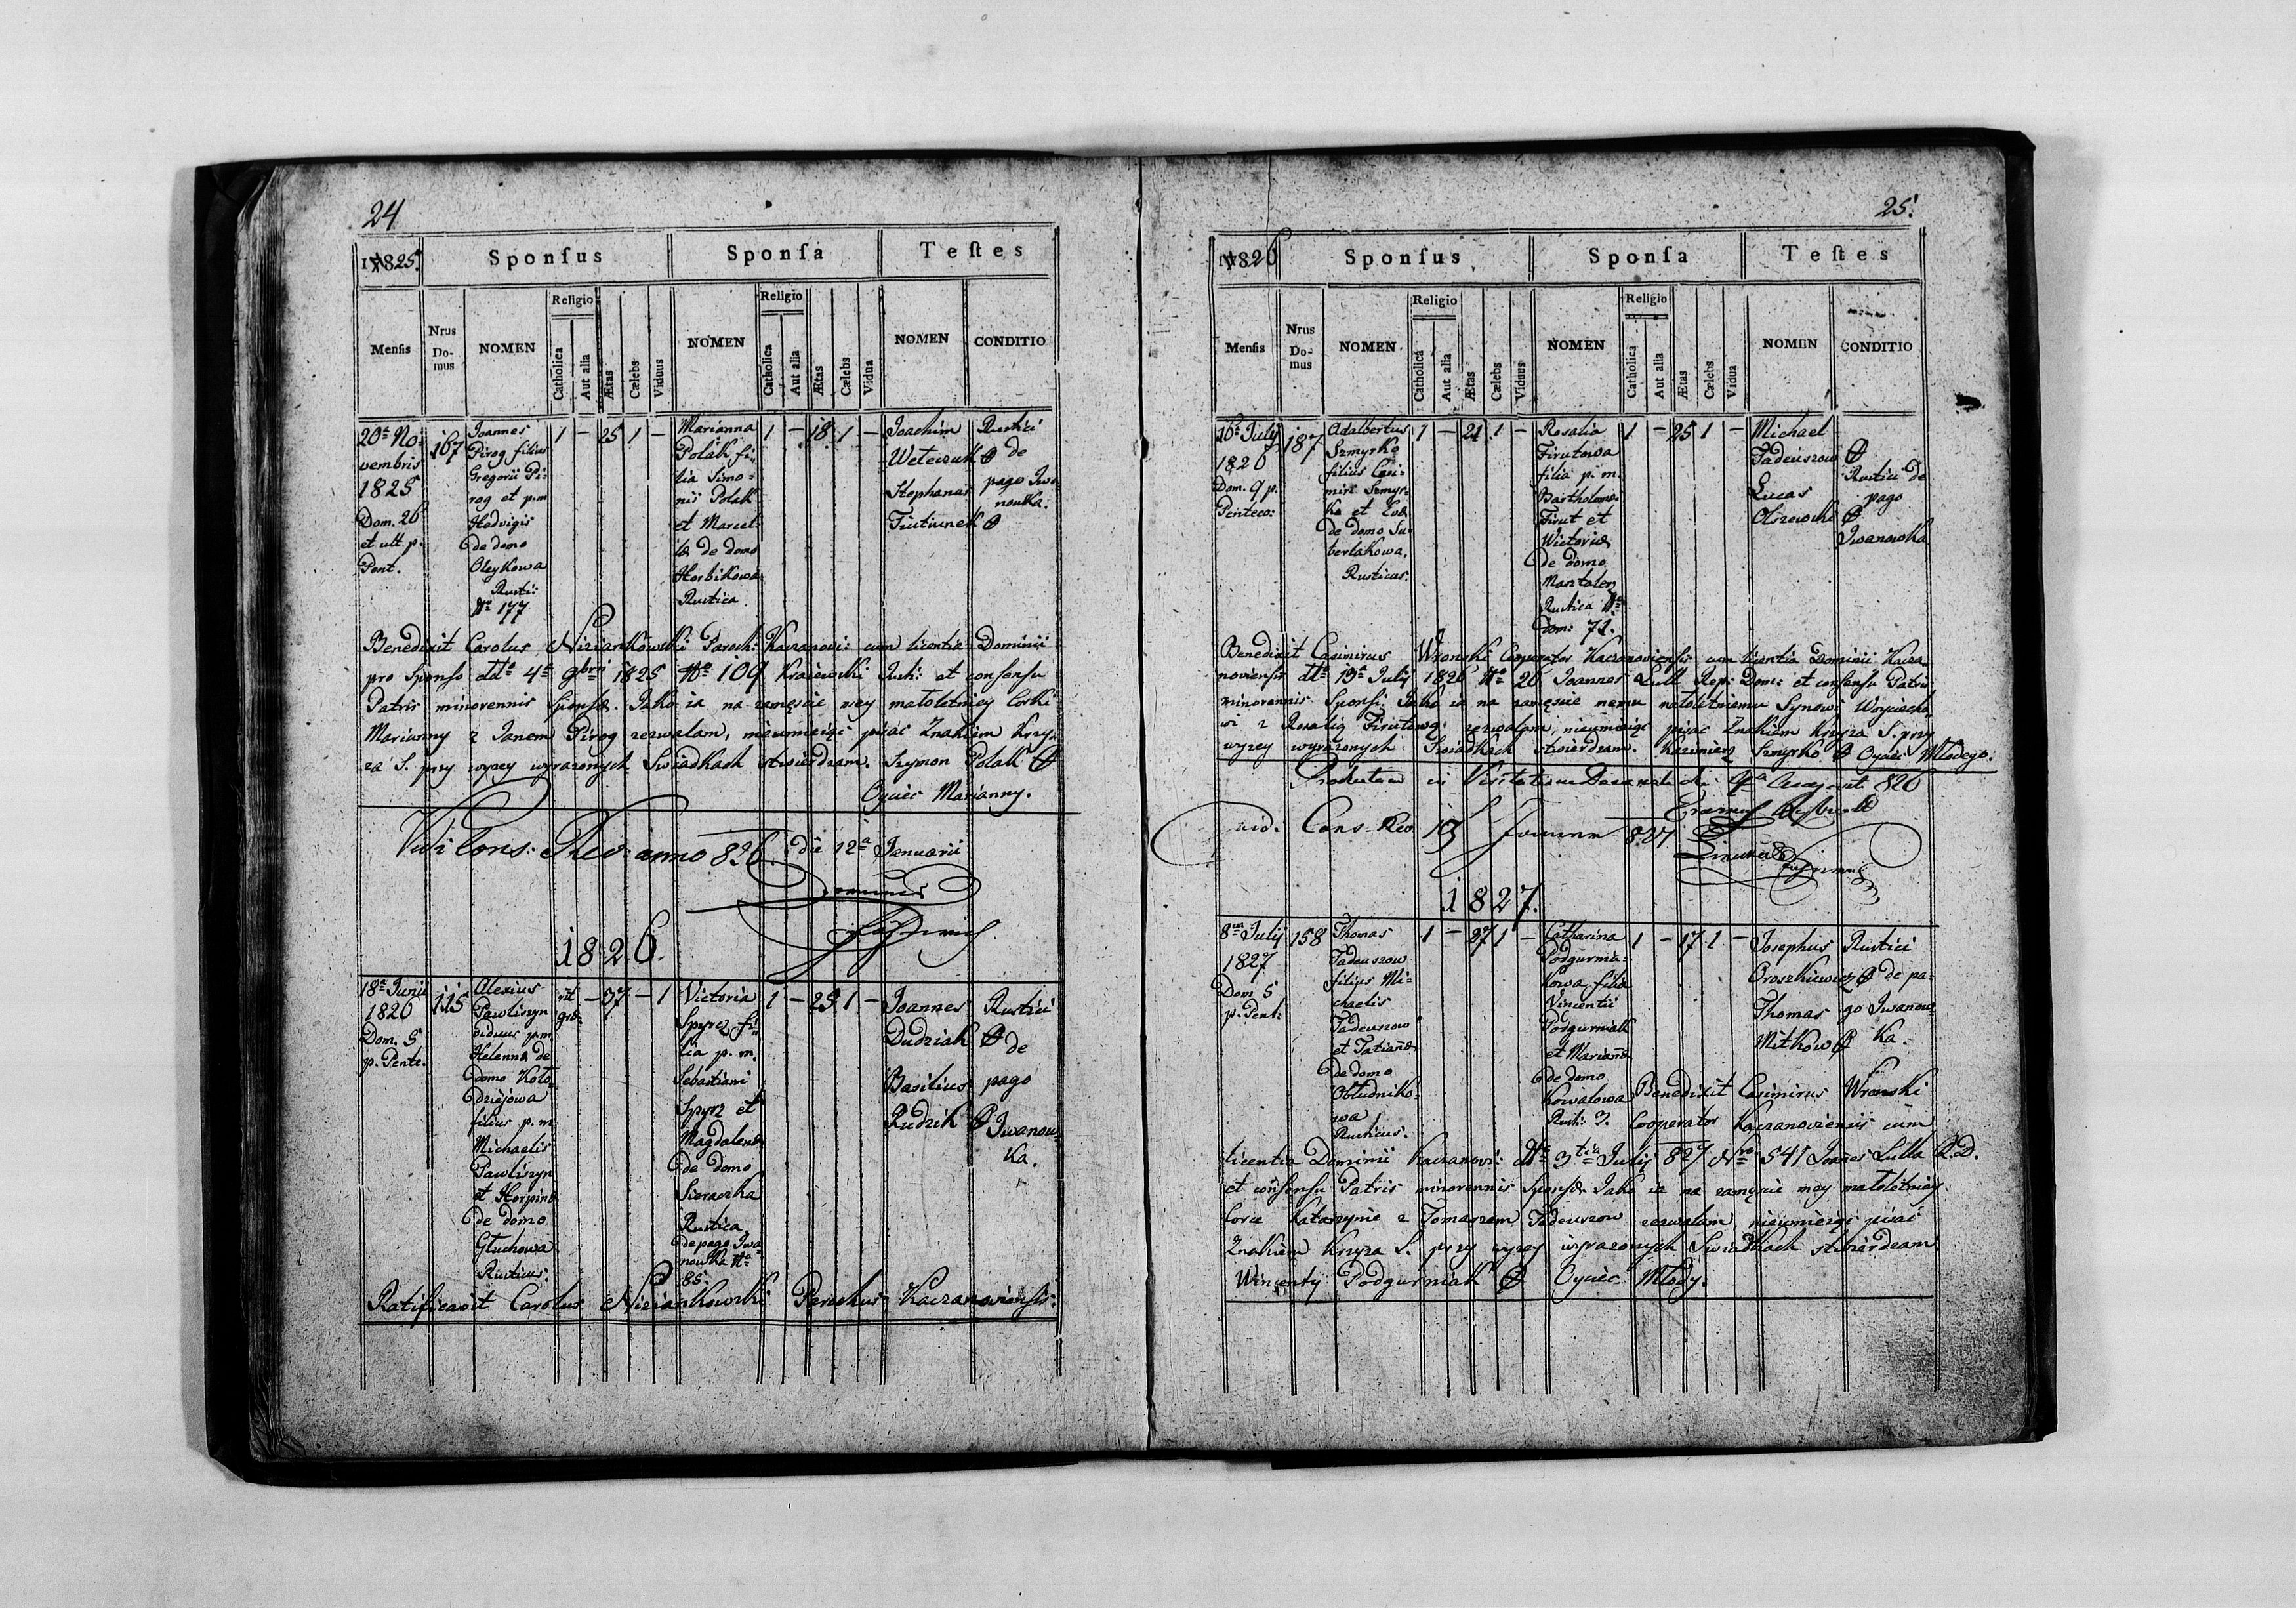 24
1825.
Sponsus
Sponsa
Testes
Mensis
Nrus Domus
NOMEN
Religio
Catholica
Aut alia
Ætas
Cælebs
Viduus
NOMEN
Religio
Catholica
Aut alia
Ætas
Cælebs
Vidua
NOMEN
CONDITIO
20a No-
vembris
1825
Dom. 26
et ult. p.
Pent.
167
Joannes
Pirog filius
Gregorii Pi-
rog et p.m
Hedvigis
de domo
Oleykowa
Rusti:
No 177
1 — 25 1 —
Marianna
Polak fi-
lia Simo-
nis Polak
et Marcel-
læ de domo
Horbikowa
Rustica
1 — 18 1 —
Joachim
Stephanus
Rustici
de
pago Iwa-
nowka.
Benedixit Carolus Niziankowski Paroch: Kaczanovi: cum licentia Dominii
pro Sponso ddto 4a 9bri 1825 No 109 Kraiewski Just: et consensu
Patris minorennis Sponsæ. Jako ia na zamęscie mey małoletniey Corki
Marianny z Janem Pirog zezwalam, nieumieiąc pisać Znakiem Krzy-
za S. przy wyzey wyrazonych Swiadkach stwierdzam. Szymon Polak
Oyciec Marianny.
Vidi Cons: Rev: anno 826 die 12a Januarii
1826.
18a Junii
1826
Dom. 5
p. Pente.
115
Alexius
Pawliszyn
viduus p.m
Helennæ de
domo Koło-
dziejowa
filius p.m
Michaelis
Pawliszyn
et Horpinæ
de domo
Głuchowa
Rusticus.
rit
græ:
— 37 — 1
Victoria
Spyrz fi-
lia p.m.
Sebastiani
Spyrz et
Magdalenæ
de domo
Sieraczka
Rustica
de pago Iwa-
nowka No
85.
1 — 25 1 —
Joannes
Dudziak
Basilius
Rudzik
Rustici
de
pago
Iwanow-
ka.
Ratificavit Carolus Niziankowski Parochus Kaczanoviensis.
25.
1826
Sponsus
Sponsa
Testes
Mensis
Nrus Domus
NOMEN
Religio
Catholica
Aut alia
Ætas
Cælebs
Viduus
NOMEN
Religio
Catholica
Aut alia
Ætas
Cælebs
Vidua
NOMEN
CONDITIO
16a July
1826
Dom. 9 p.
Penteco:
187
Adalbertus
Szmyrko
filius Casi-
miri Szmyr-
ko et Evæ
de domo Su-
berlakowa.
Rusticus.
1 — 21 1 —
Rosalia
Firutowa
filia p.m.
Bartholomæ
Firut et
Wictoriæ
de domo
Rustica No
dom: 71.
1 — 25 1 —
Michael
Tadeuszow
Lucas
Olszewski
Rustici de
pago
Iwanowka
Benedixit Casimirus Wronski Cooperator Kaczanoviensis cum licentia Dominii Kacza-
noviensis ddto 13a July 1826 No 26 Joannes Lull Rep: Dom: et consensu Patris
minorennis Sponsi. Jako ia na zamęscie memu małoletniemu Synowi Woyciecho-
wi z Rozalią Firutową zezwalam, nieumieiąc pisać Znakiem Krzyza S. przy
wyzey wyrazonych Swiadkach stwierdzam. Kazimierz Szmyrko Oyciec Młodego.
1827.
8va July
1827
Dom 5
p. Pent:
158
Thomas
Tadeuszow
filius Mi-
chaelis
Tadeuszow
et Tatiannæ
de domo
Obłudniko-
wa
Rusticus.
1 — 27 1 —
Catharina
Podgurnia-
kowa filia
Vincentii
Podgurniak
et Mariannæ
de domo
Kowalowa
Rusti: 3.
1 — 17 1 —
Josephus
Oroszkiewicz
Thomas
Mitkow
Rustici
de pa-
go Iwanow-
ka.
Benedixit Casimirus Wronski
Cooperator Kaczanoviensis cum
licentia Dominii Kaczanovi: ddto 3tia July 827 Nro 541 Joañes Lulla R.D.
et consensu Patris minorennis Sponsæ. Jako ia na zamęscie moy małoletniey
Corce Katarzynie z Tomaszem Tadeuszow zezwalam nieumieiąc pisać
Znakiem Krzyza S. przy wyzey wyrazonych Swiadkach stwierdzam
Wincenty Podgurniak Oyciec Młody.